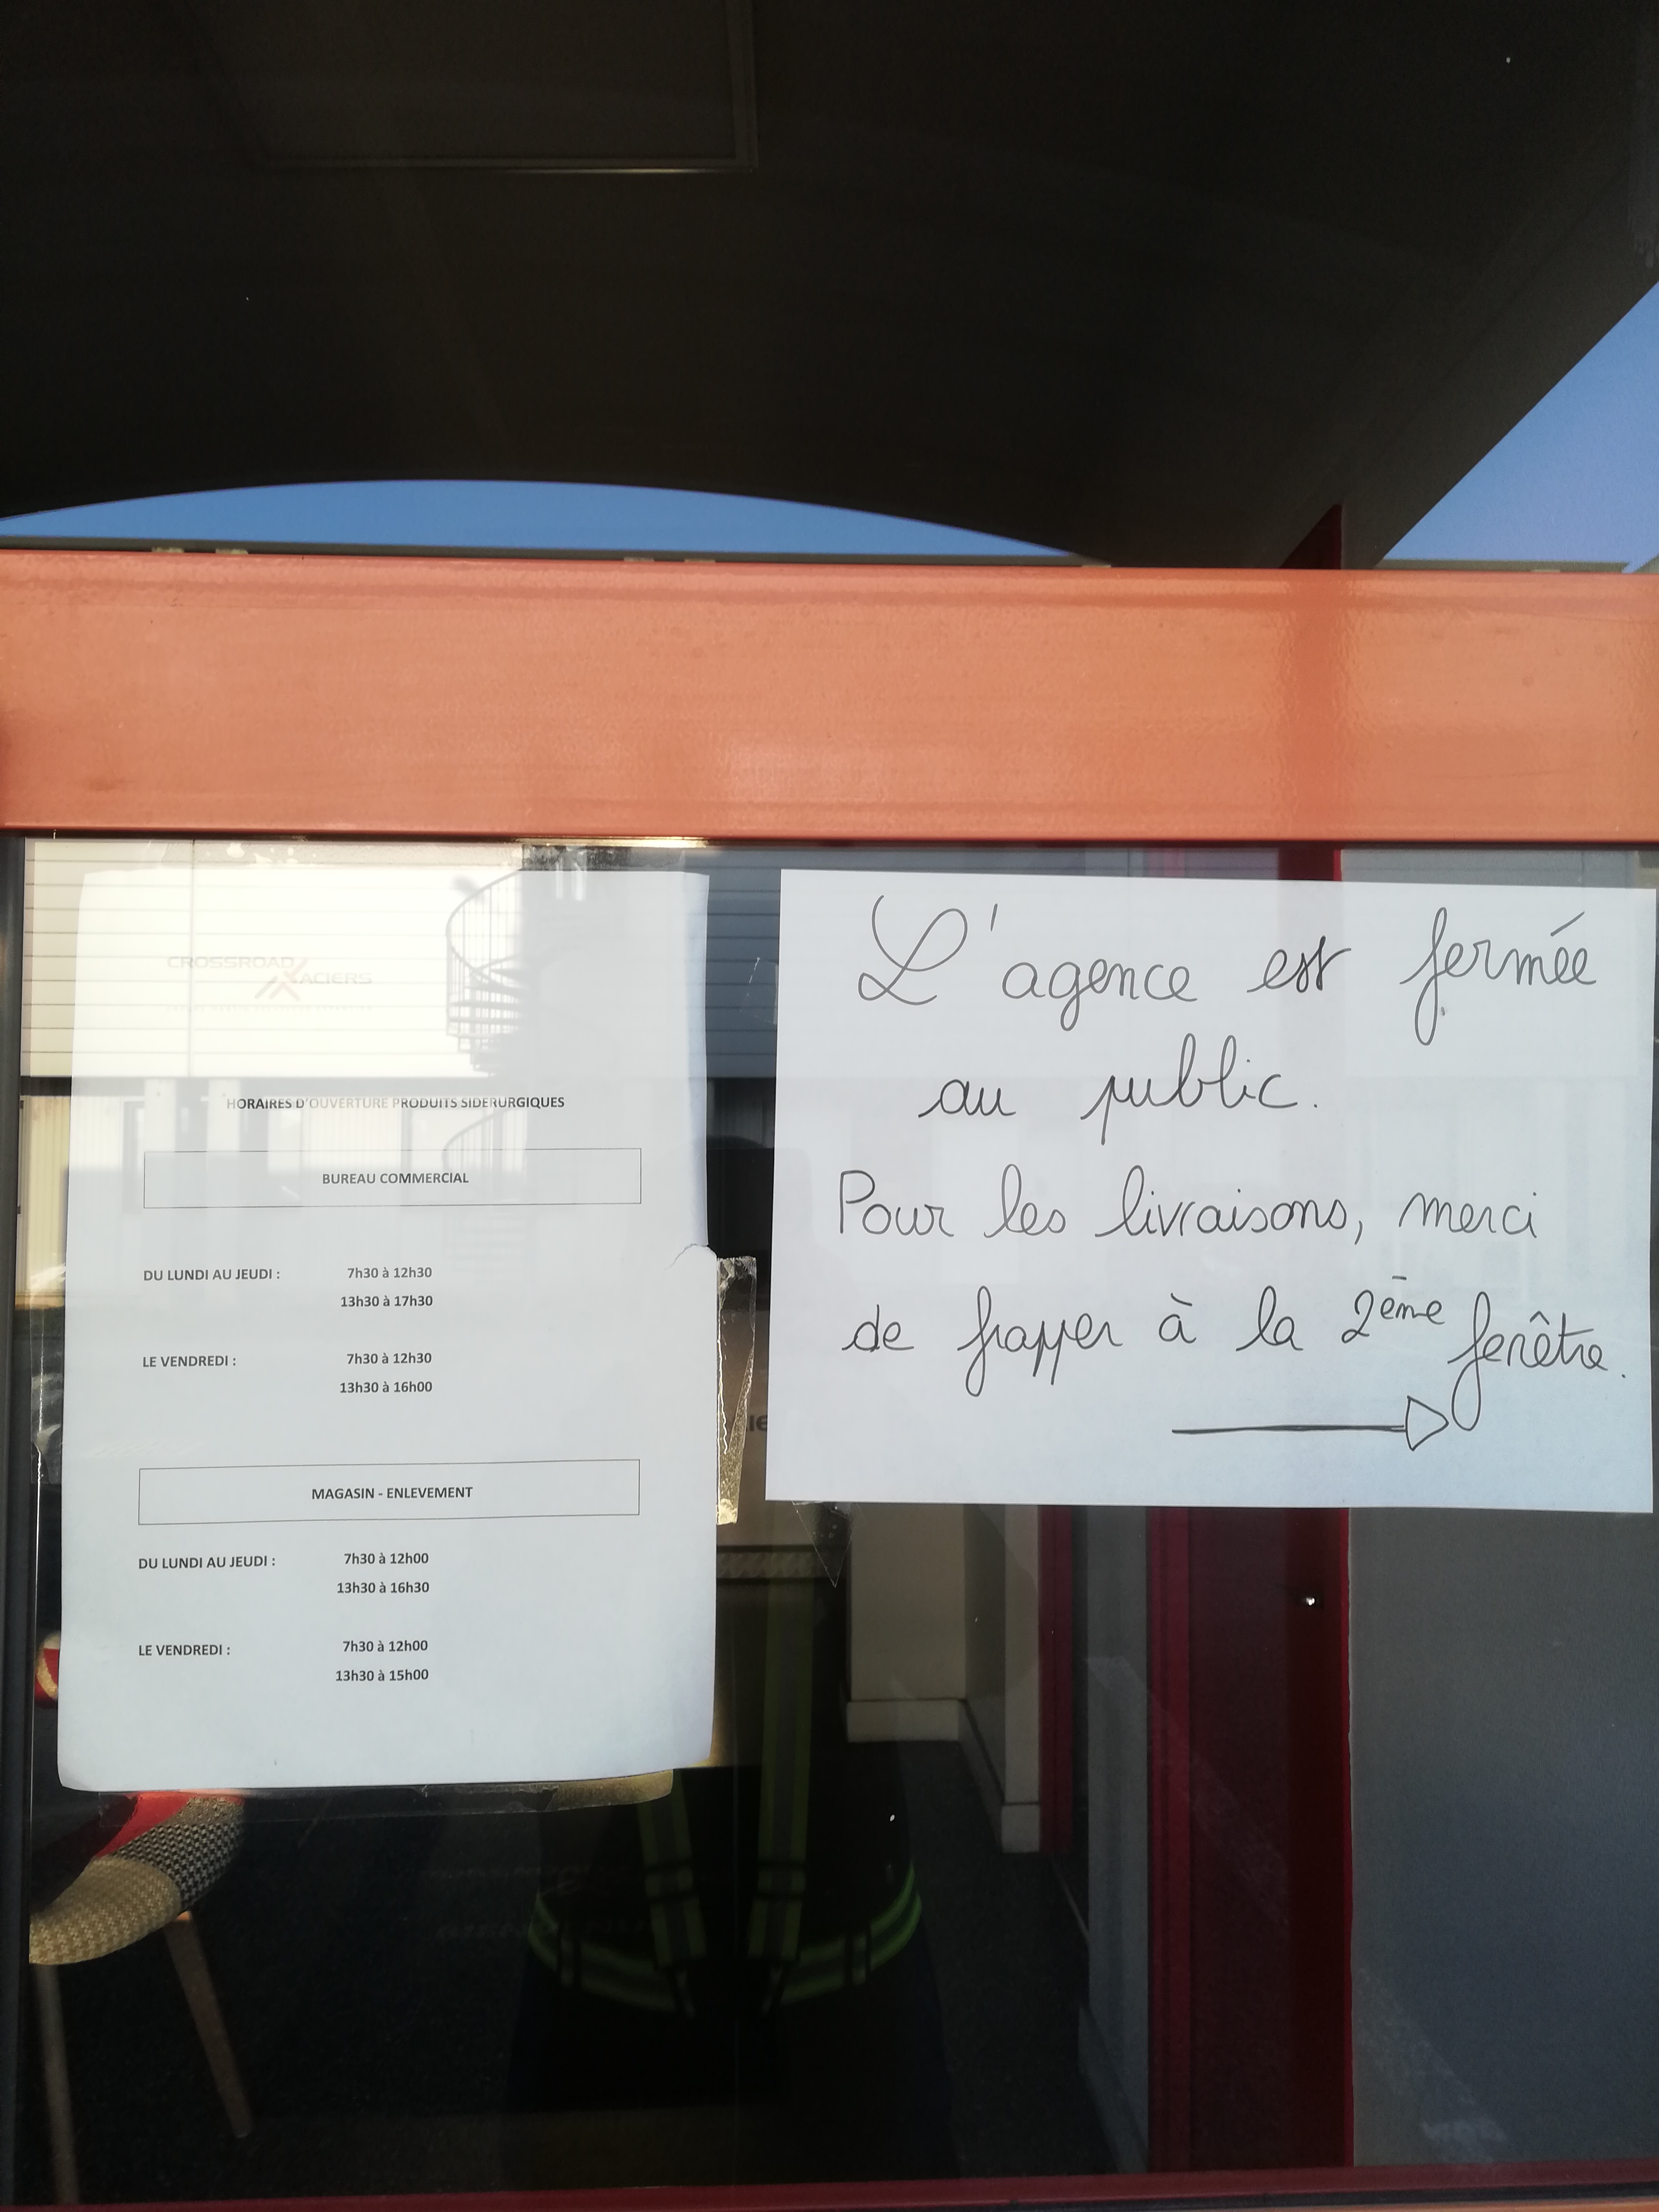 CROSSROAD
ACIERS
HORAIRES D'OUVERTURE PRODUITS SIDERURGIQUES
BUREAU COMMERCIAL
DU LUNDI AU JEUDI : 7h30 à 12h30
13h30 à 17h30
LE VENDREDI : 7h30 à 12h30
13h30 à 16h00
MAGASIN - ENLEVEMENT
DU LUNDI AU JEUDI : 7h30 à 12h00
13h30 à 16h30
LE VENDREDI : 7h30 à 12h00
13h30 à 15h00
L'agence est fermée
au public.
Pour les livraisons, merci
de frapper à la 2ème fenêtre.